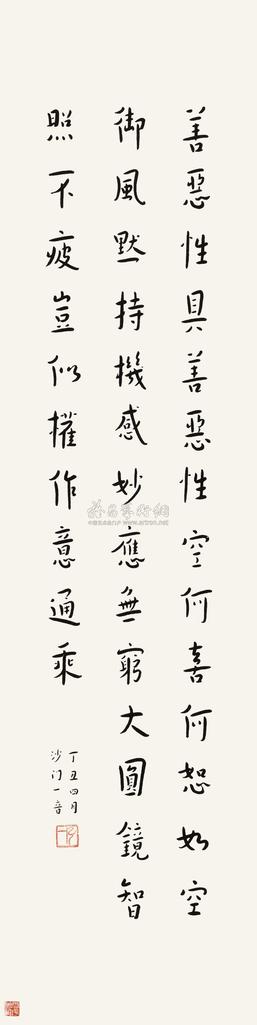 善惡性具善惡性空何喜何恕如空
御風默持機感妙應無窮大圓鏡智
照不疲豈似權作意通乘
丁丑四月
沙门一音
www.artron.net